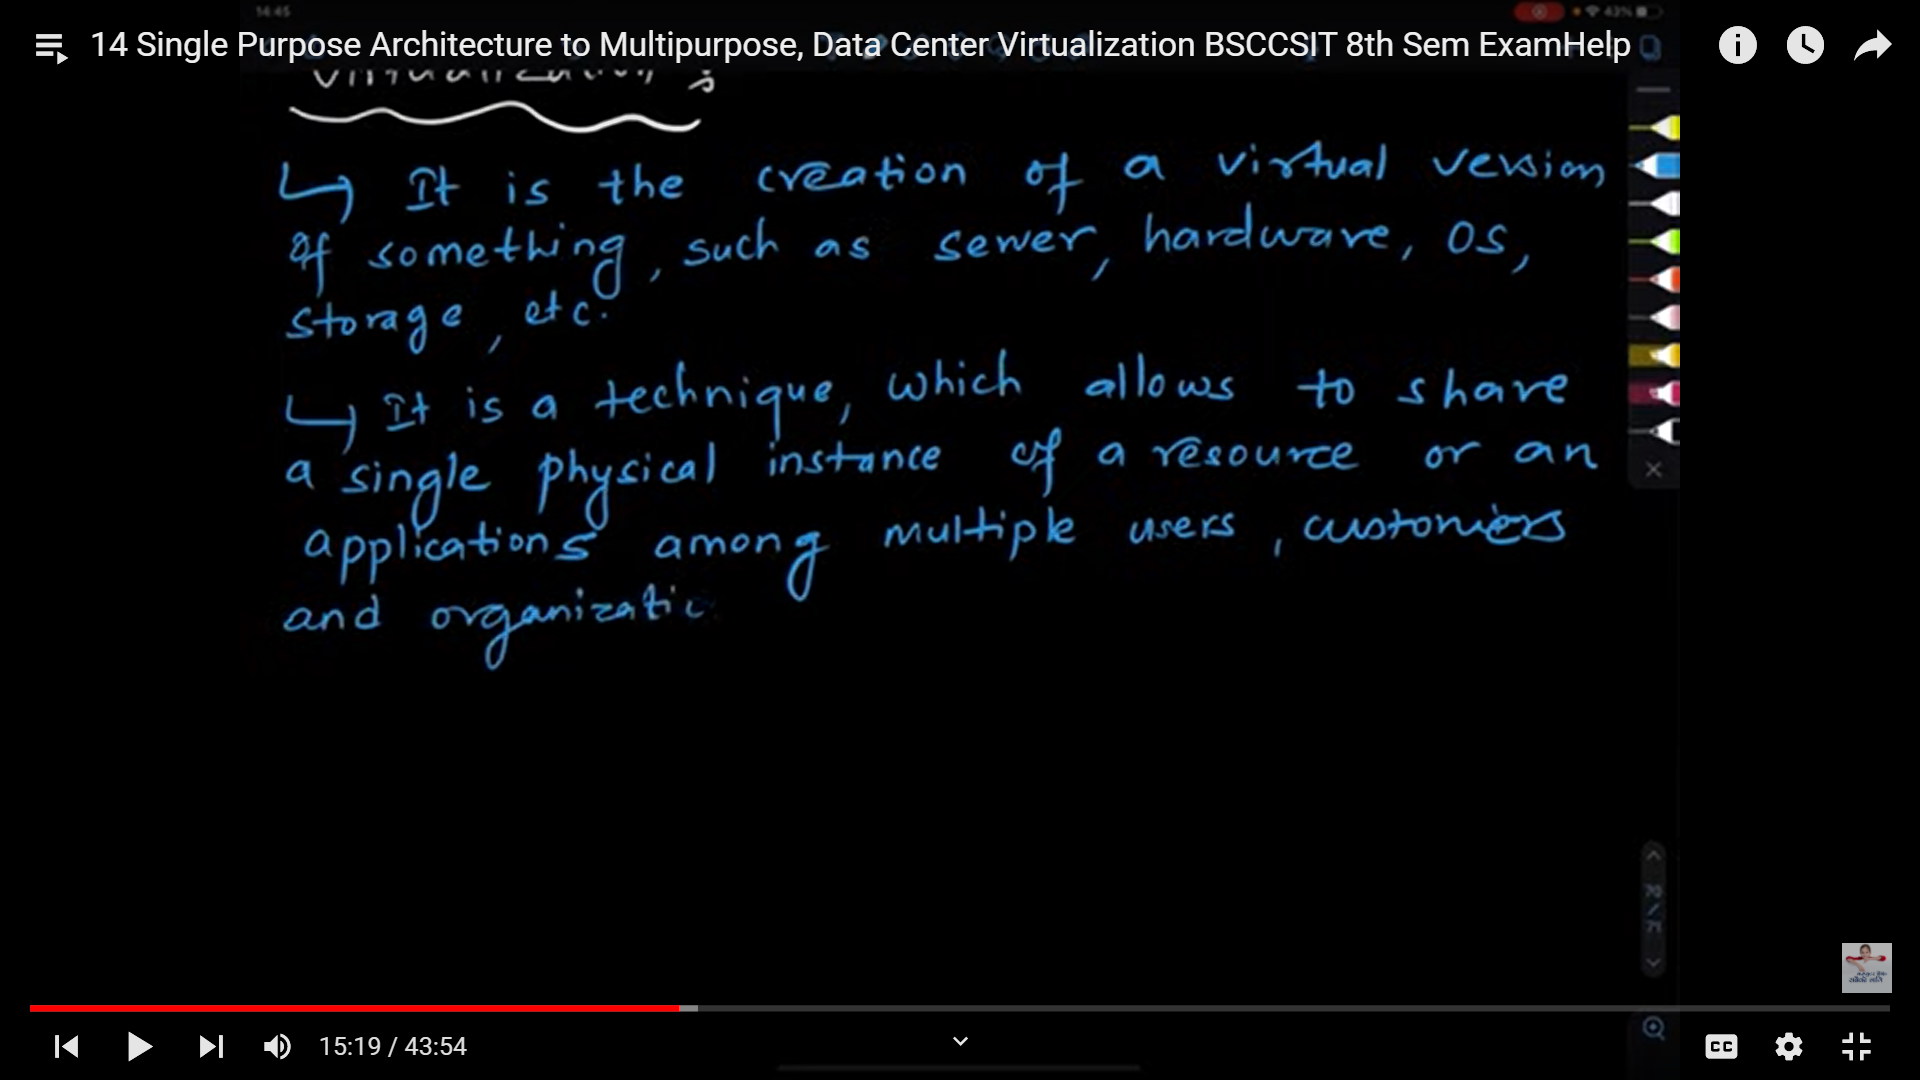 14:45
43%
14 Single Purpose Architecture to Multipurpose, Data Center Virtualization BSCCSIT 8th Sem ExamHelp
Virtualization :
↳ It is the creation of a virtual version
of something, such as server, hardware, OS,
storage, etc.
↳ It is a technique, which allows to share
a single physical instance of a resource or an
applications among multiple users, customers
and organizatio
70 / 71
15:19 / 43:54
CC